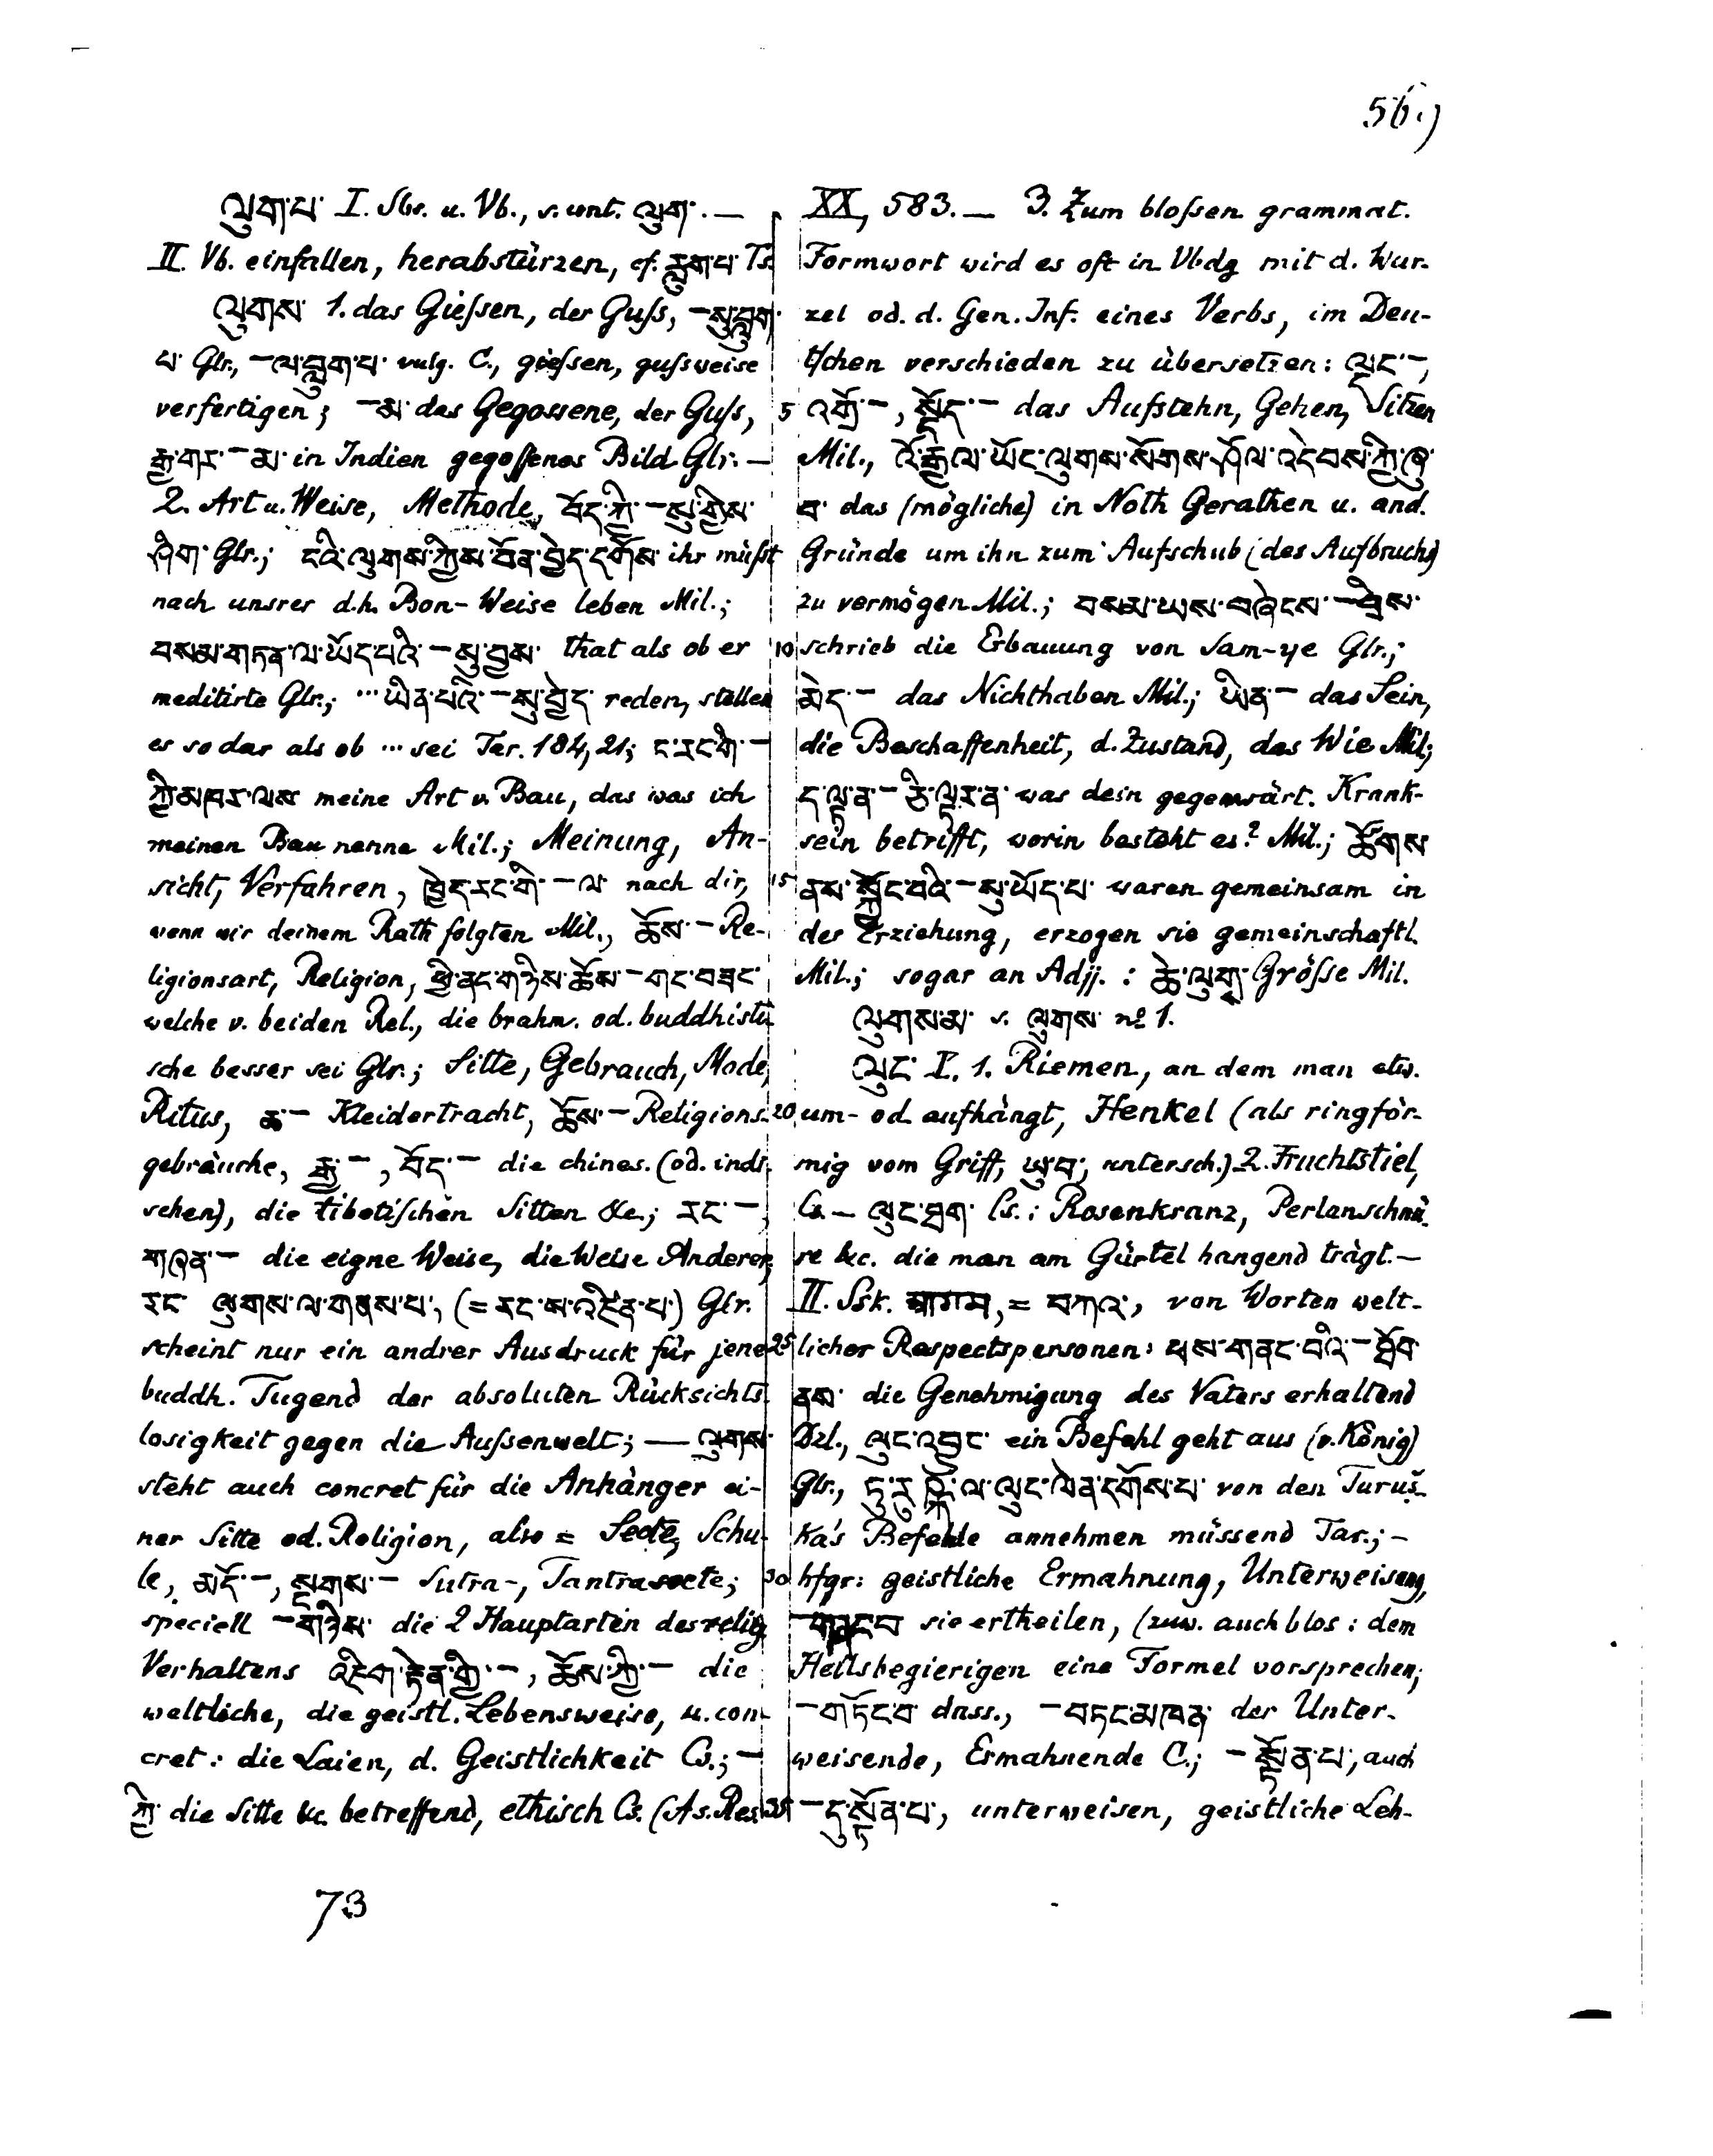 ལུག་པ་ I. Sbs. u. Vb., s. unt. ལུག་. —
II. Vb. einfallen, herabstürzen, cf. རླུག་པ་ Ts.
ལུགས་ 1. das Giessen, der Guss, –སུ་བླུག་
པ་ Glr., –ལ་བླུག་པ་ vulg. C., giessen, gussweise
verfertigen; –མ་ das Gegossene, der Guss,
རྒྱ་གར་–མ་ in Indien gegossenes Bild Glr. —
2. Art u. Weise, Methode, བོད་ཀྱི་–སུ་གྱིས་
ཤིག་ Glr.; ངའི་ལུགས་ཀྱིས་བོན་བྱེད་དགོས་ ihr müsst
nach unsrer d.h. Bon-Weise leben Mil.;
བསམ་གཏན་ལ་ཡོད་པའི་–སུ་བྱས་ that als ob er
meditirte Glr.; ··· ཡིན་པའི་–སུ་བྱེད་ reden, stellen
es so dar als ob ··· sei Tar. 184, 21; ང་རང་གི་–
ཀྱི་མཁར་ལས་ meine Art v. Bau, das was ich
meinen Bau nenne Mil.; Meinung, An-
sicht, Verfahren, ཁྱེད་རང་གི་–ལ་ nach dir,
wenn wir deinem Rath folgten Mil., ཆོས་–Re-
ligionsart, Religion, ཕྱི་ནང་གཉིས་ཆོས་–གང་བཟང་
welche v. beiden Rel., die brahm. od. buddhisti-
sche besser sei Glr.; Sitte, Gebrauch, Mode,
Ritus, ཆ་– Kleidertracht, ཆོས་–Religions-
gebräuche, རྒྱ་–, བོད་– die chines. (od. indi-
schen), die tibetischen Sitten &c.; རང་–,
གཞན་– die eigne Weise, die Weise Anderer,
རང་ ལུགས་ལ་གནས་པ་, (= རང་ས་འཛིན་པ་) Glr.
scheint nur ein andrer Ausdruck für jene
buddh. Tugend der absoluten Rücksichts-
losigkeit gegen die Aussenwelt; — ལུགས་
steht auch concret für die Anhänger ei-
ner Sitte od. Religion, also = Secte, Schu-
le, མདོ་–, སྔགས་– Sutra-, Tantrasecte;
speciell –གཉིས་ die 2 Hauptarten des relig.
Verhaltens འཇིག་རྟེན་གྱི་–, ཆོས་ཀྱི་– die
weltliche, die geistl. Lebensweise, u. con-
cret: die Laien, d. Geistlichkeit Cs.; –
ཀྱི་ die Sitte &c. betreffend, ethisch Cs. (As. Res.
XX, 583. — 3. Zum blossen grammat.
Formwort wird es oft in Vbdg mit d. Wur-
zel od. d. Gen. Inf. eines Verbs, im Deu-
tschen verschieden zu übersetzen: ལང་–,
5 འགྲོ་–, སྡོད་– das Aufstehn, Gehen, Sitzen
Mil., འོ་རྒྱལ་ཡོང་ལུགས་སོགས་ཤོལ་འདེབས་ཀྱི་ཞུ་
བ་ das (mögliche) in Noth Gerathen u. and.
Gründe um ihn zum Aufschub (des Aufbruchs)
zu vermögen Mil.; བསམ་ཡས་བཞེངས་–བྲིས་
10 schrieb die Erbauung von Sam-ye Glr.;
མེད་– das Nichthaben Mil.; ཡིན་– das Sein,
die Beschaffenheit, d. Zustand, das Wie Mil.;
ད་ལྟ་ན་–ཅི་ལྟར་ན་ was dein gegenwärt. Krank-
sein betrifft, worin besteht es? Mil.; ཚོགས་
15 ནས་སྐྱོང་བའི་–སུ་ཡོད་པ་ waren gemeinsam in
der Erziehung, erzogen sie gemeinschaftl.
Mil.; sogar an Adjj.: ཆེ་ལུགས་ Grösse Mil.
ལུགས་མ་ s. ལུགས་ no 1.
ལུང་ I. 1. Riemen, an dem man etw.
20 um- od. aufhängt, Henkel (als ringför-
mig vom Griff, ཡུ་བ་, untersch.) 2. Fruchtstiel,
Cs. — ལུང་ཐག་ Cs.: Rosenkranz, Perlenschnü-
re &c. die man am Gürtel hangend trägt. —
II. Ssk. आगम, = བཀའ་, von Worten welt-
25 licher Respectspersonen: ཡས་གནང་བའི་–ཐོབ་
ནས་ die Genehmigung des Vaters erhaltend
Dzl., ལུང་འབྱུང་ ein Befehl geht aus (v. König)
Glr., ཏུ་རུ་ཥྐ་ལ་ལུང་ལེན་དགོས་པ་ von den Turuš-
ka's Befehle annehmen müssend Tar.; –
30 hfgr: geistliche Ermahnung, Unterweisung,
–གནང་བ sie ertheilen, (zuw. auch blos: dem
Heilsbegierigen eine Formel vorsprechen;
–གཏོང་བ་ dass., –བཏང་མཁན་ der Unter-
weisende, Ermahnende C.; –སྟོན་པ་, auch
35 –དུ་སྟོན་པ་, unterweisen, geistliche Leh-
73